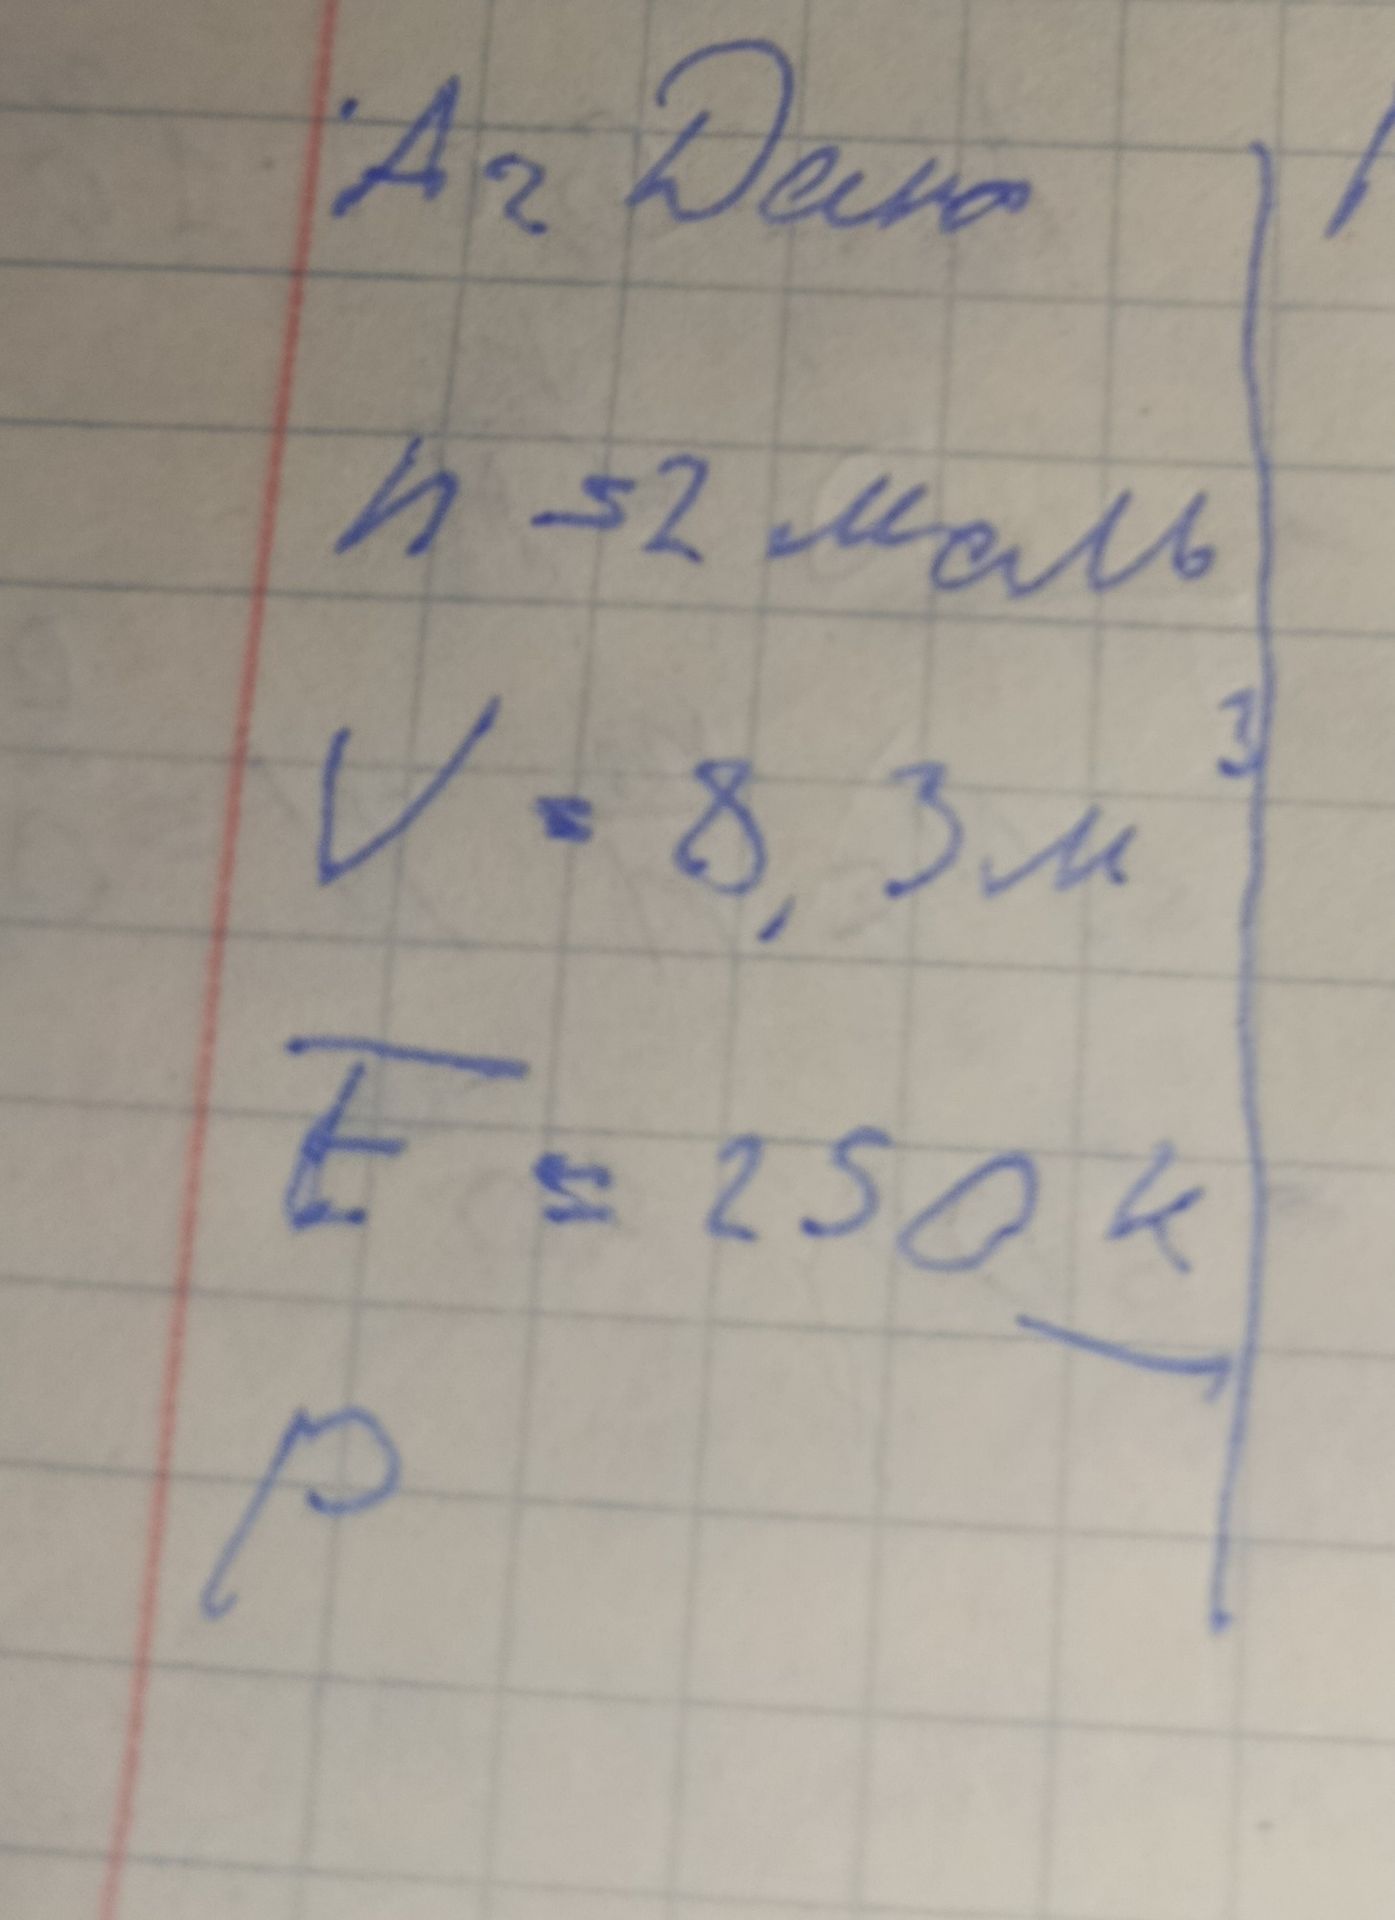 A2 Дано
n = 2 моль
V = 8,3 м³
E = 250 к
p